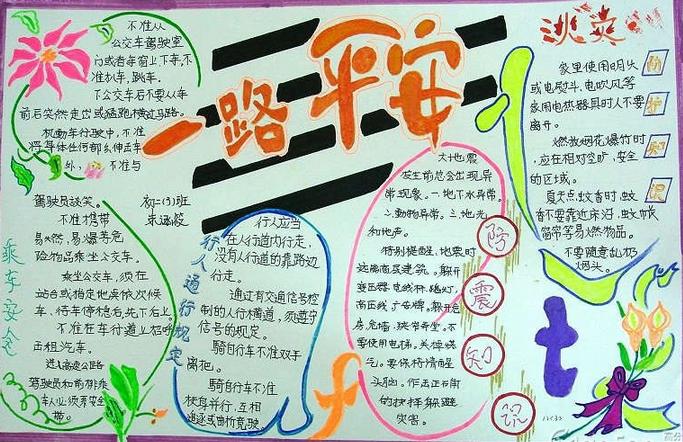 一路平安
不准从
公交车驾驶室
门或者车窗上下车,不
准扒车,跳车。
下公交车后不要从车
前后突然走出或猛跑横过马路。
机动车行驶中,不准
将身体任何部分伸出车
外,不准与
驾驶员谈笑。
不准携带
易燃,易爆等危
险物品乘坐公交车。
乘坐公交车,须在
站台或指定地点依次候
车,待车停稳后,先下后上。
不准在车行道上招呼
出租汽车。
进入高速公路
驾驶员和前排乘
车人必须系安全
带。
乘车安全
初二(3)班
行人通行规定
行人应当
在人行道内行走,
没有人行道的靠路边
行走。
通过有交通信号控
制的人行横道,须遵守
信号的规定。
骑自行车不准双手
离把。
骑自行车不准
扶身并行,互相
追逐或曲折竞驶
大地震
发生前总会出现异
常现象。一.地下水异常。
二.动物异常。三.地光
和地声。
特别提醒,地震时
远离高层建筑。躲开
变压器.电线杆.路灯,
高压线.广告牌。躲开危
房,危墙.狭窄街巷。不
要使用电梯。关掉煤
气。要保持清醒
头脑。作出正确
的抉择躲避
灾害。
防震知识
家里使用明火
或电熨斗,电吹风等
家用电热器具时人不要
离开。
燃放烟花爆竹时
,应在相对空旷,安全
的区域。
夏天点蚊香时,蚊
香不要靠近床沿,蚊帐
窗帘等易燃物品。
不要随意乱扔
烟头。
防护知识